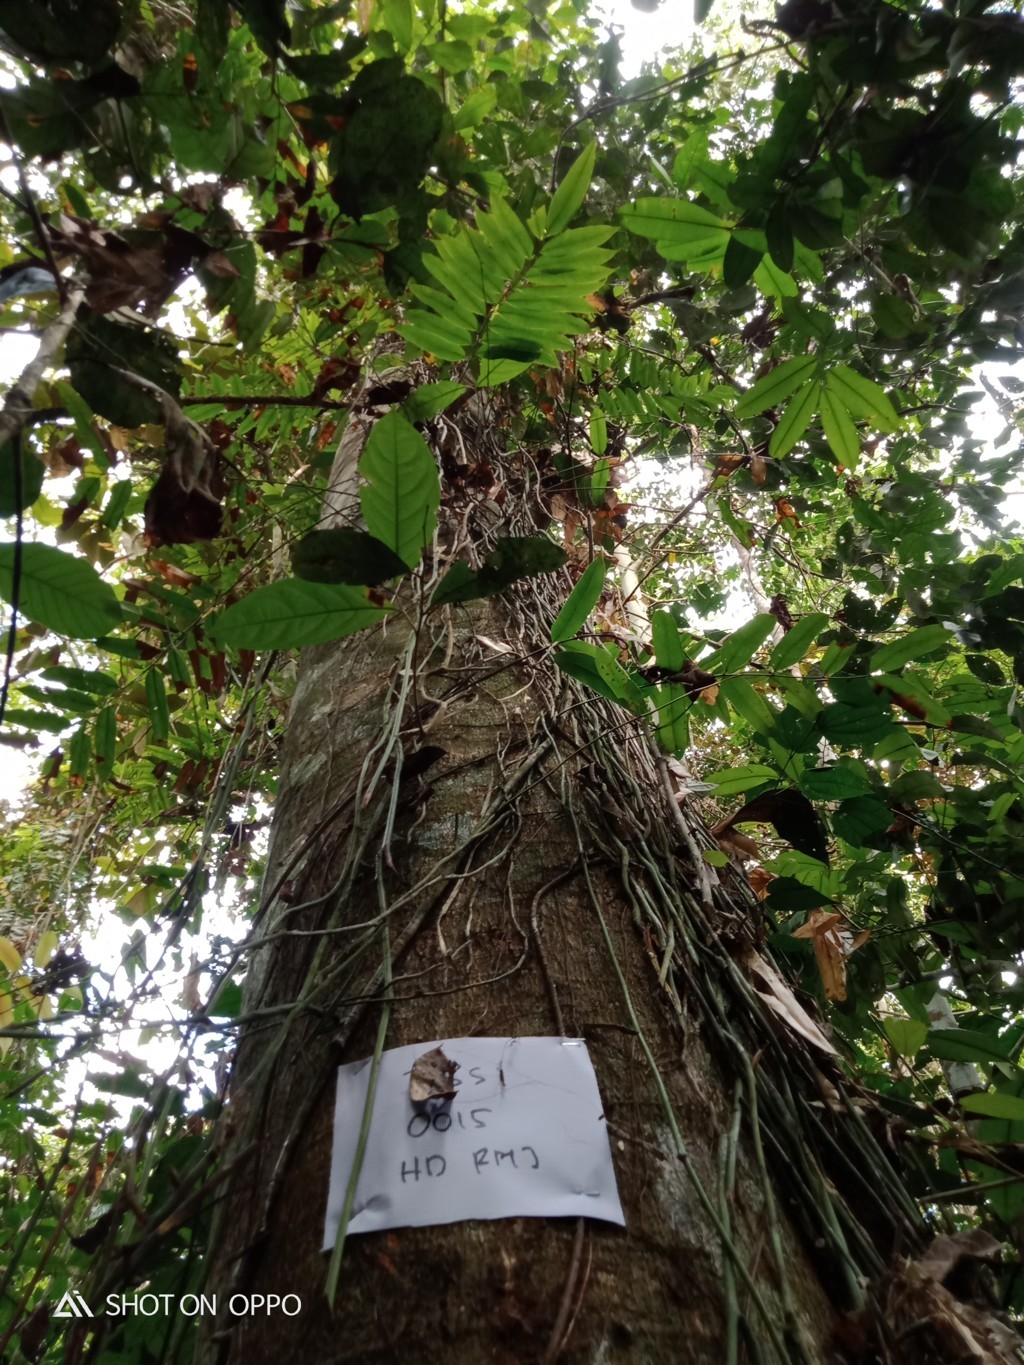 0015
HD RMJ
SHOT ON OPPO